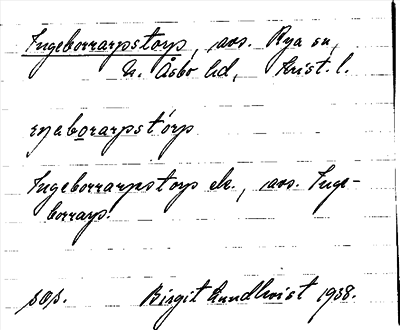 Ingeborrarpstorp, avs. Rya sn,
N. Åsbo hd, Krist. l.
Ingeborrarpstorp ek., avs. Inge-
borrarp.
sos. Birgit Lundkvist 1938.